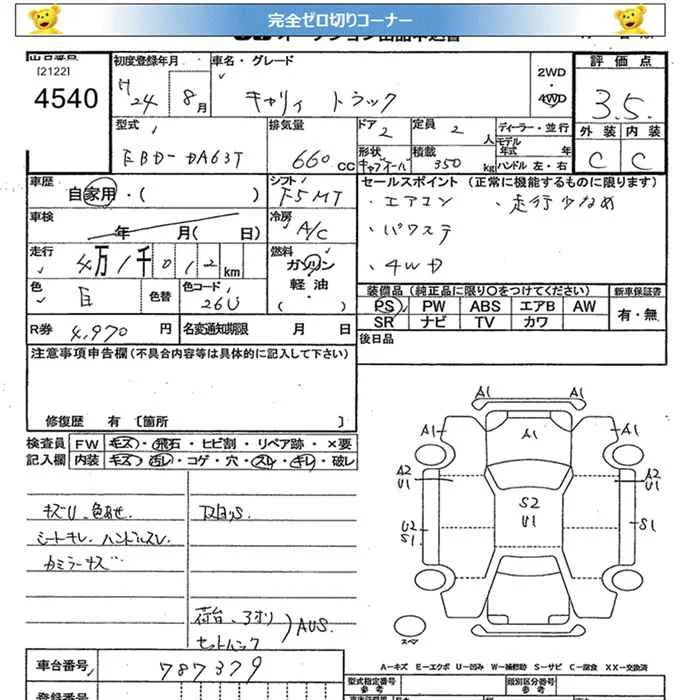 完全ゼロ切りコーナー
[2122]
4540
初度登録年月
H 24年 8月
車名・グレード
キャリィ トラック
2WD
4WD
評価点
3.5
外装 内装
C C
型式
EBD-DA63T
排気量
660 CC
ドア
2
定員
2 人
形状
積載
350 kg
ディーラー・並行
モデル年式 年
ハンドル 左・右
車歴
自家用・( )
シフト
F5MT
車検
年 月( 日)
冷房
A/C
走行
4万1千012km
燃料
ガソリン
軽油
・( )
色
白
色替
色コード
26U
R券 4,970円
名変通知期限 月 日
セールスポイント (正常に機能するものに限ります)
・エアコン ・走行少なめ
・パワステ
・4WD
装備品 (純正品に限り○をつけてください)
PS PW ABS エアB AW
SR ナビ TV カワ
新車保証書
有・無
後日品
注意事項申告欄(不具合内容等は具体的に記入して下さい)
修復歴 有 [箇所 ]
検査員 FW キズ・飛石・ヒビ割・リペア跡・×要
記入欄 内装 キズ・汚レ・コゲ・穴・スレ・キレ・破レ
キズU、色あせ
シートキレ、ハンドルスレ
下回りS
荷台、3オリ
AUS
A1 A1
A1 A1 A1
A2 U1
A2 U1
S2 U1
U2 S1
S1
スペ
A－キズ E－エクボ U－凹み W－補修跡 S－サビ C－腐食 XX－交換済
車台番号
787379
登録番号
型式指定番号
参考
類別区分番号
参考